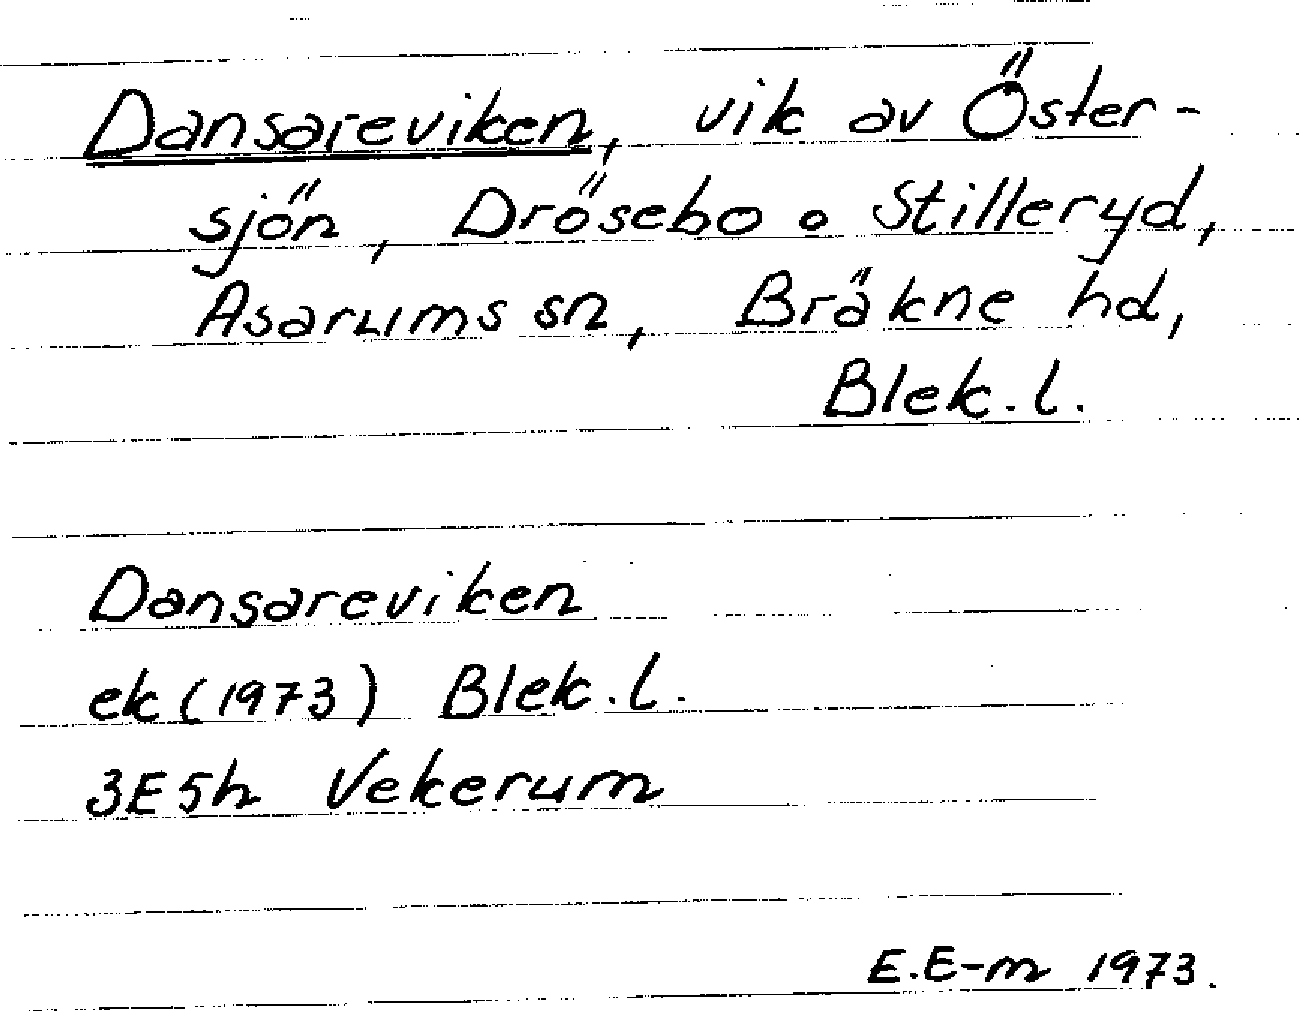 Dansareviken, vik av Öster-
sjön, Drösebo o Stilleryd,
Asarums sn, Bräkne hd,
Blek. l.
Dansareviken
ek (1973) Blek. l.
3E5h Vekerum
E.E-m 1973.